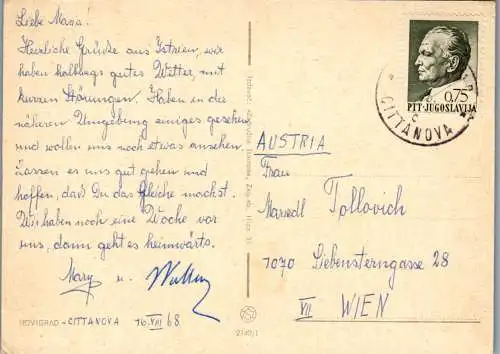 Liebe Maria!
Herzliche Grüße aus Istrien, wir
haben halbwegs gutes Wetter, mit
kurzen Störungen. Haben in die
näheren Umgebung einiges gesehen
und wollen uns noch etwas ansehen.
Lassen es uns gut gehen und
hoffen, daß Du das Gleiche machst.
Wir haben noch eine Woche vor
uns, dann geht es heimwärts.
Mary u.
NOVIGRAD - CITTANOVA 16 VIII 68
2149/1
0,75
PTT-JUGOSLAVIJA
CITTANOVA
AUSTRIA
Frau
Mariedl Tollovich
1070 Liebensterngasse 28
VII WIEN